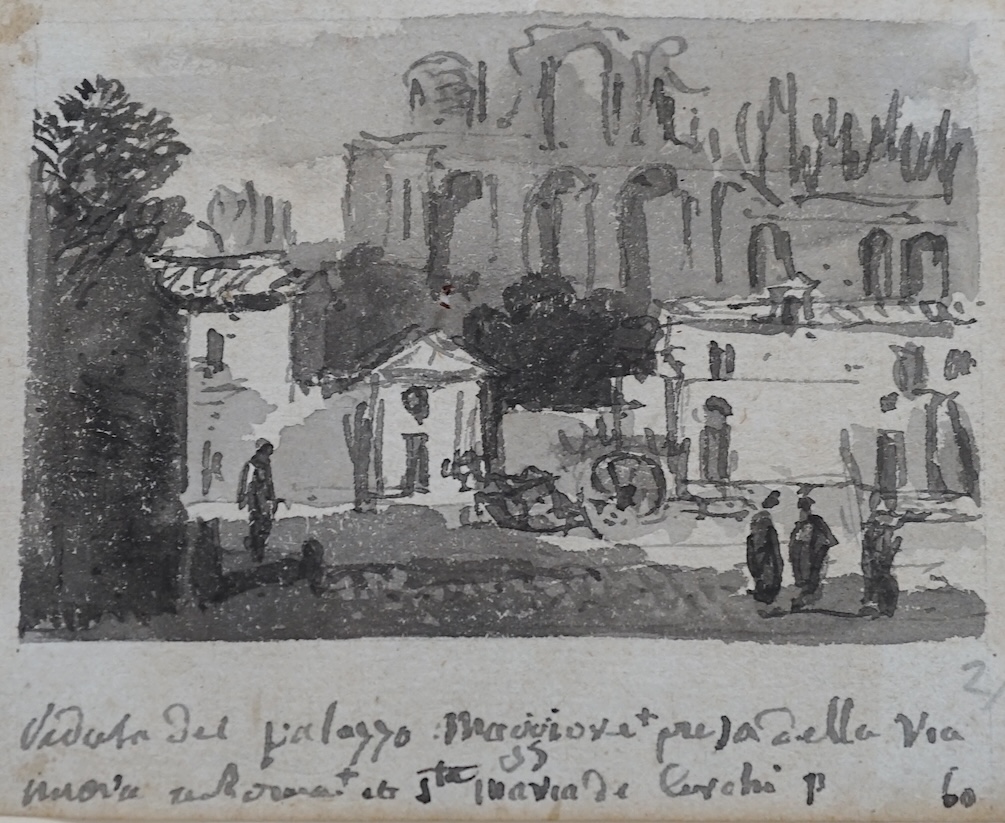 2
Veduta del palazzo Maggiore+ presa della Via
nuova a Roma+ et Sta Maria de Cerchi p 60